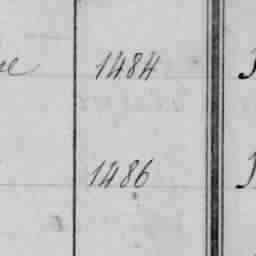 1484
1486